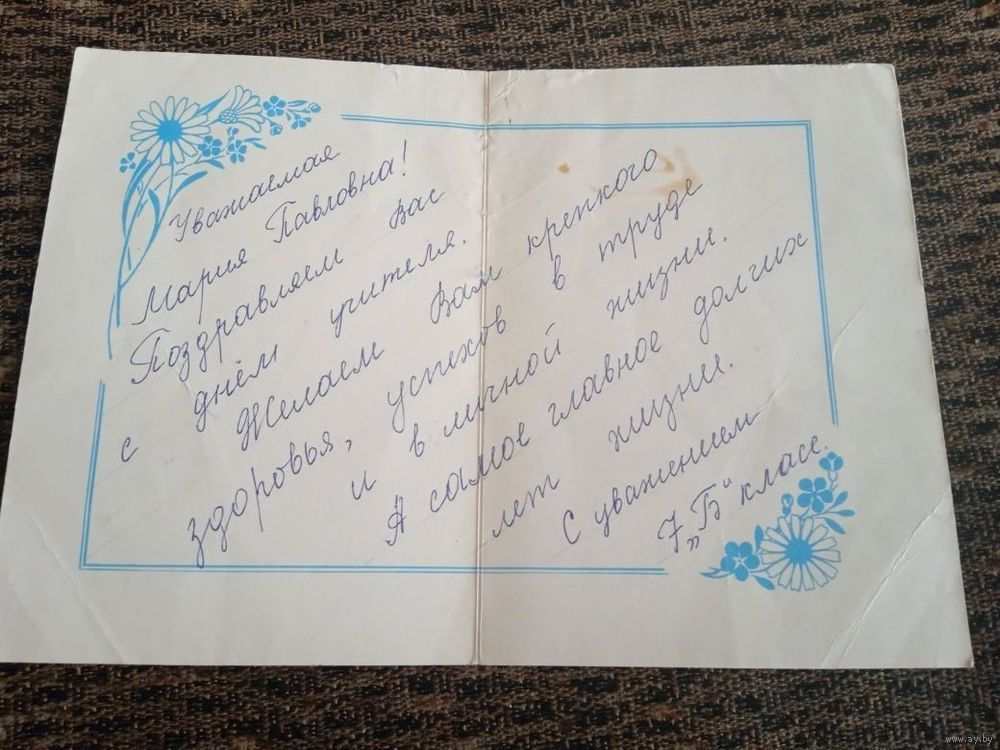 Уважаемая
Мария Павловна!
Поздравляем Вас
с днём учителя.
Желаем Вам крепкого
здоровья, успехов в труде
и в личной жизни.
А самое главное долгих
лет жизни.
С уважением
7 „Б“ класс.
www.ay.by